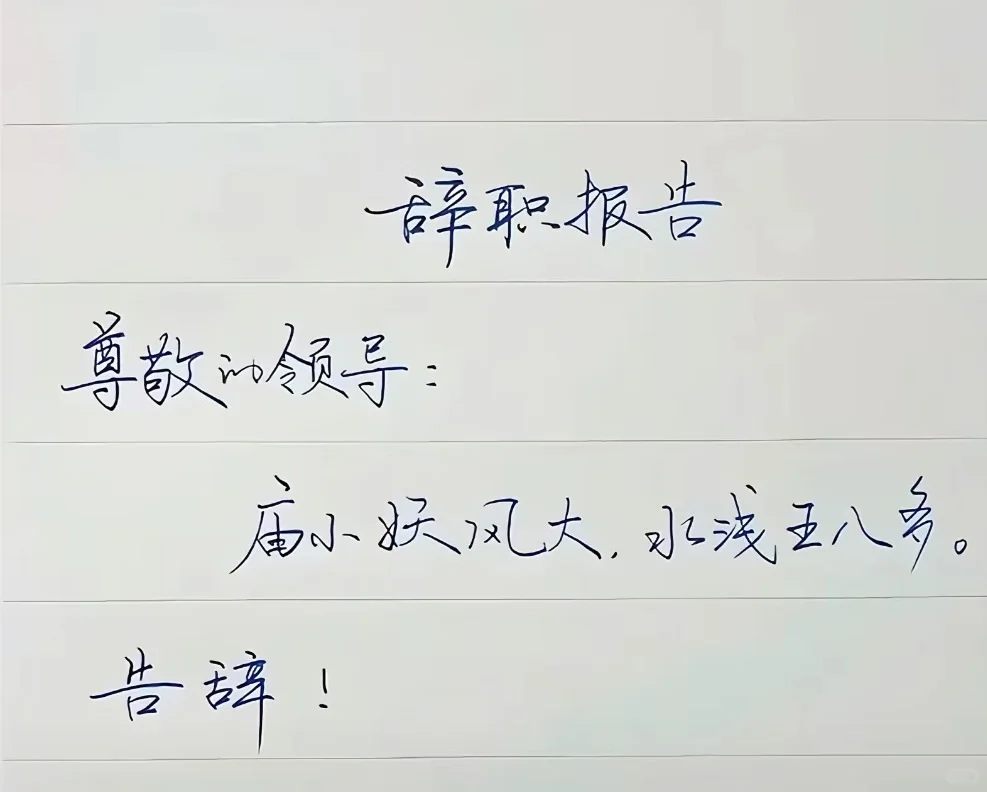 辞职报告
尊敬的领导：
庙小妖风大，水浅王八多。
告辞！